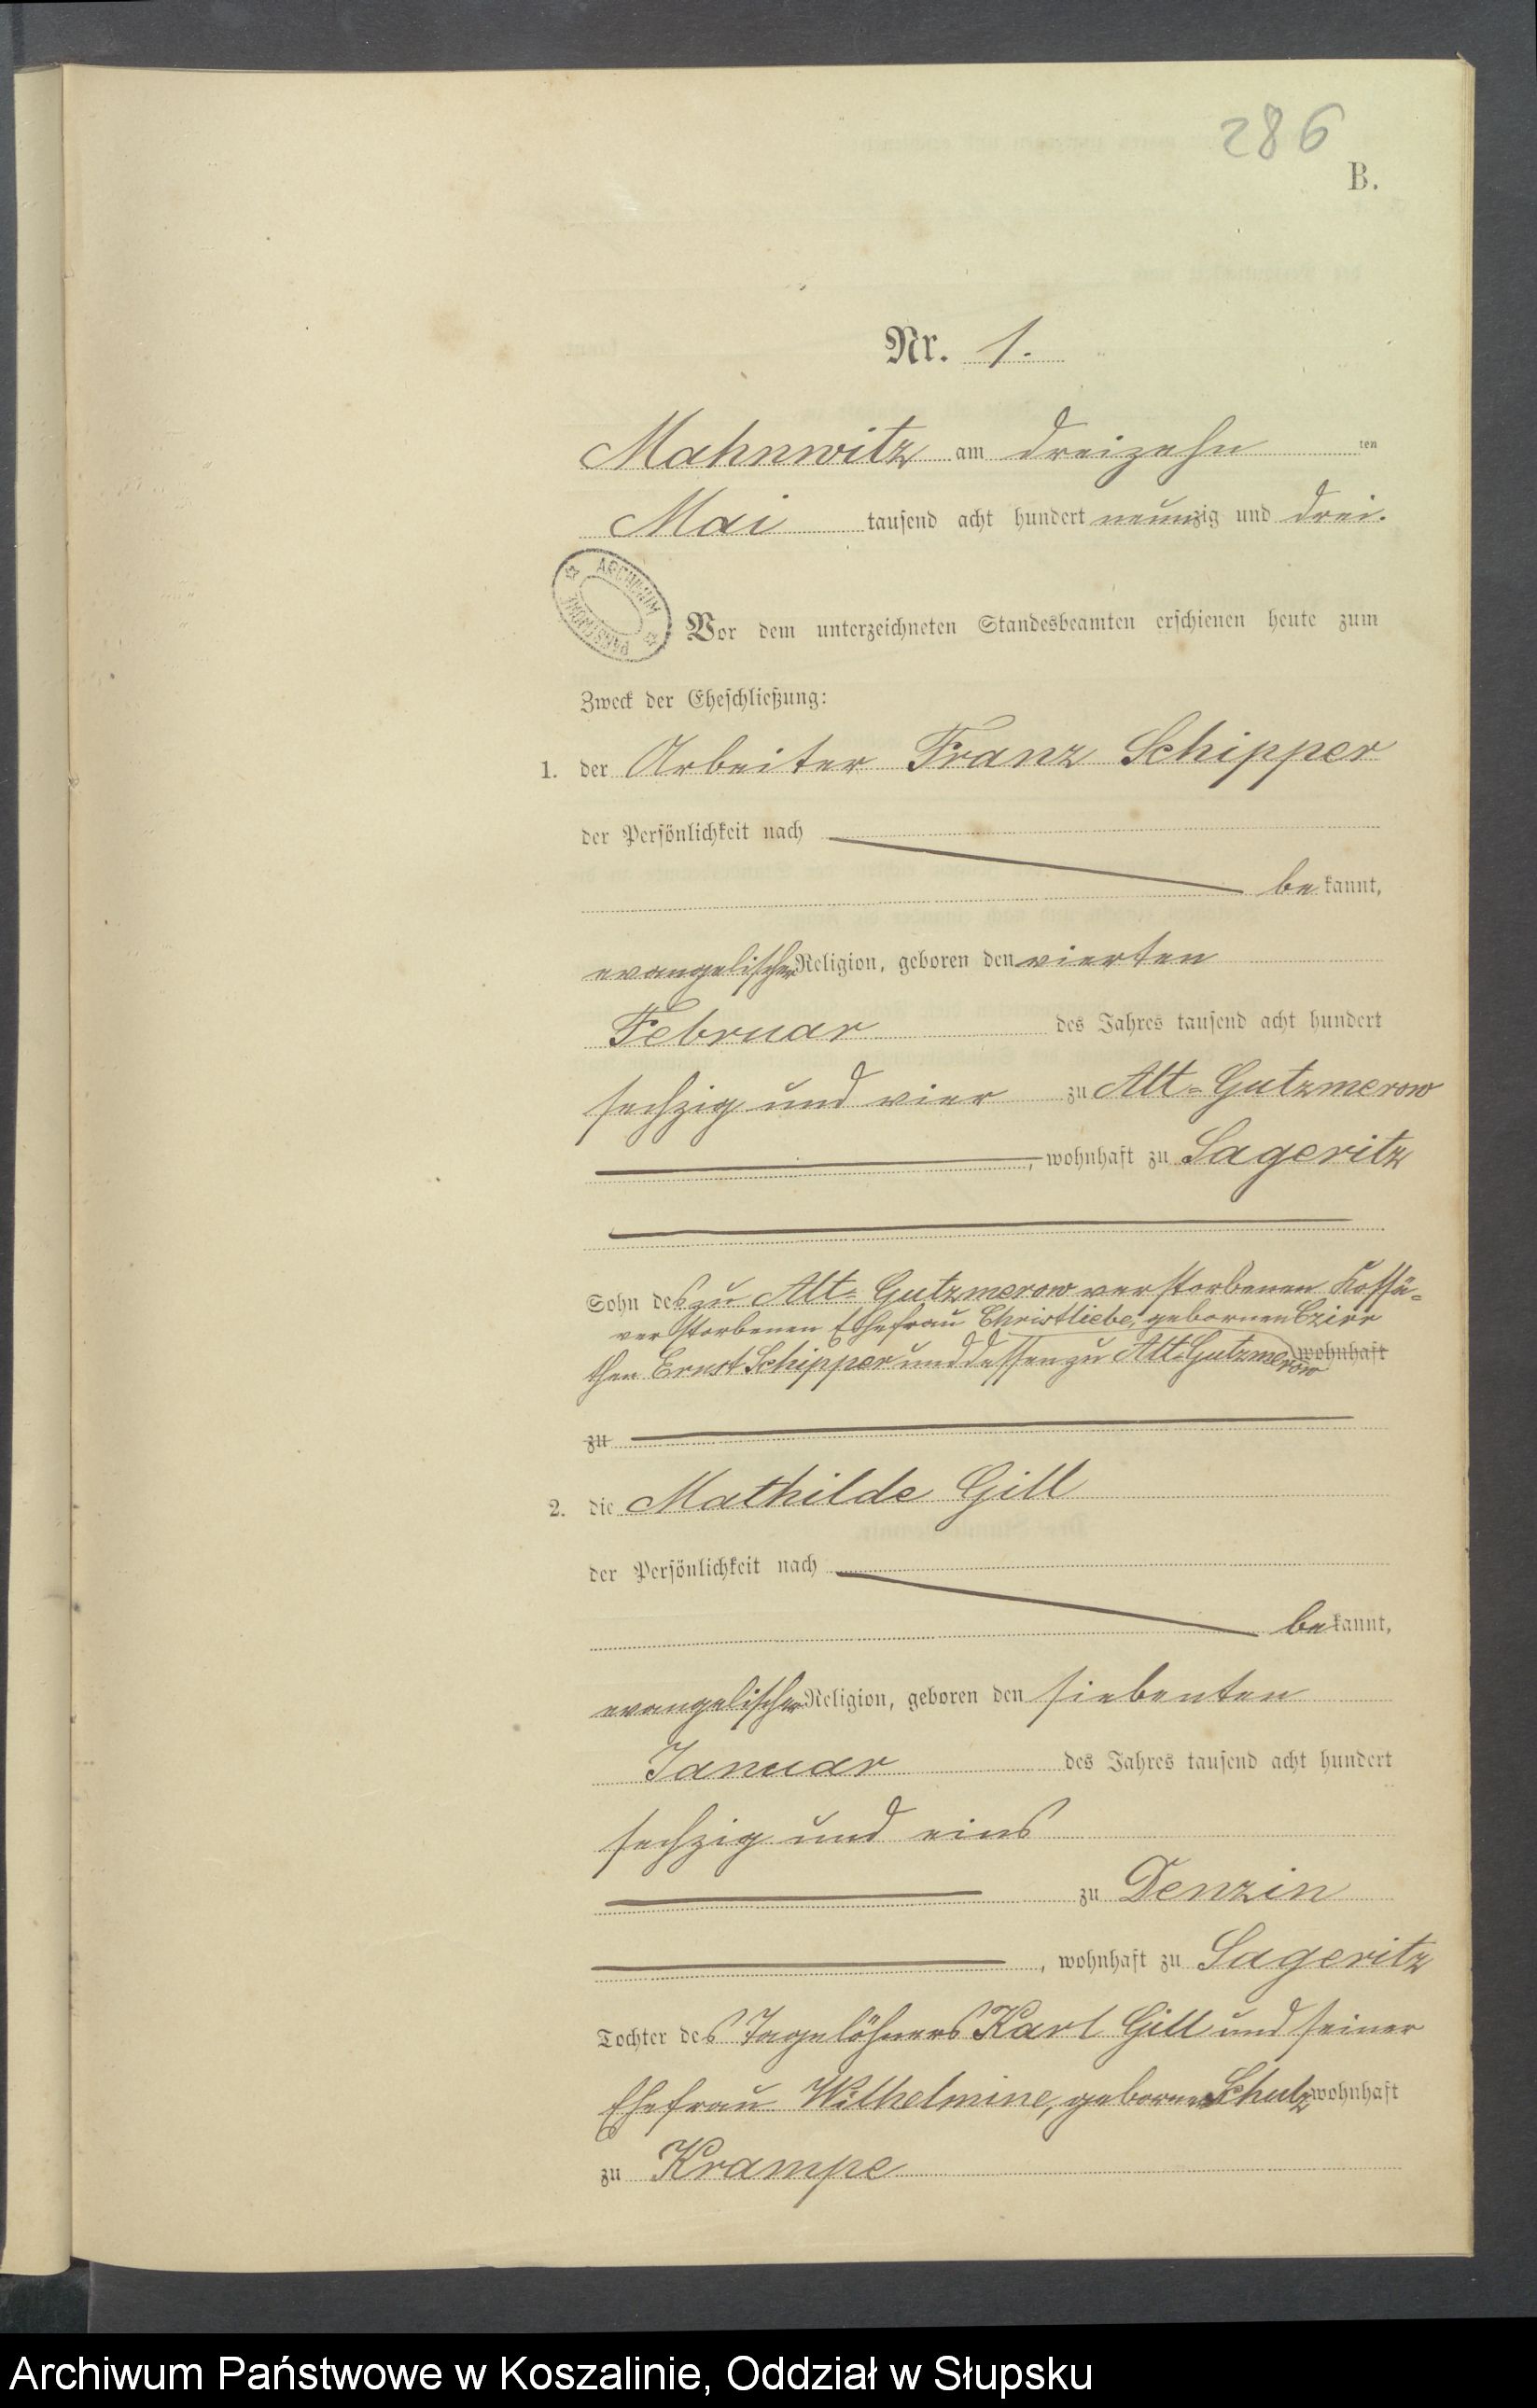 286
B.
Nr. 1.
Mahnwitz am dreizehn ten
Mai tausend acht hundert neunzig und drei.
ARCHIWUM PAŃSTWOWE
Vor dem unterzeichneten Standesbeamten erschienen heute zum
Zweck der Eheschließung:
1. der Arbeiter Franz Schipper
der Persönlichkeit nach
bekannt,
evangelischer Religion, geboren den vierten
Februar des Jahres tausend acht hundert
sechzig und vier zu Alt-Gutzmerow
, wohnhaft zu Sageritz
Sohn des zu Alt-Gutzmerow verstorbenen Kossä-
verstorbenen Ehefrau Christliebe, gebornen Czirr
then Ernst Schipper und dessen zu Alt-Gutzmerow wohnhaft
zu
2. die Mathilde Gill
der Persönlichkeit nach
bekannt,
evangelischer Religion, geboren den siebenten
Januar des Jahres tausend acht hundert
sechzig und eins
zu Denzin
, wohnhaft zu Sageritz
Tochter des Tagelöhners Karl Gill und seiner
Ehefrau Wilhelmine, gebornen Schulz wohnhaft
zu Krampe
Archiwum Państwowe w Koszalinie, Oddział w Słupsku